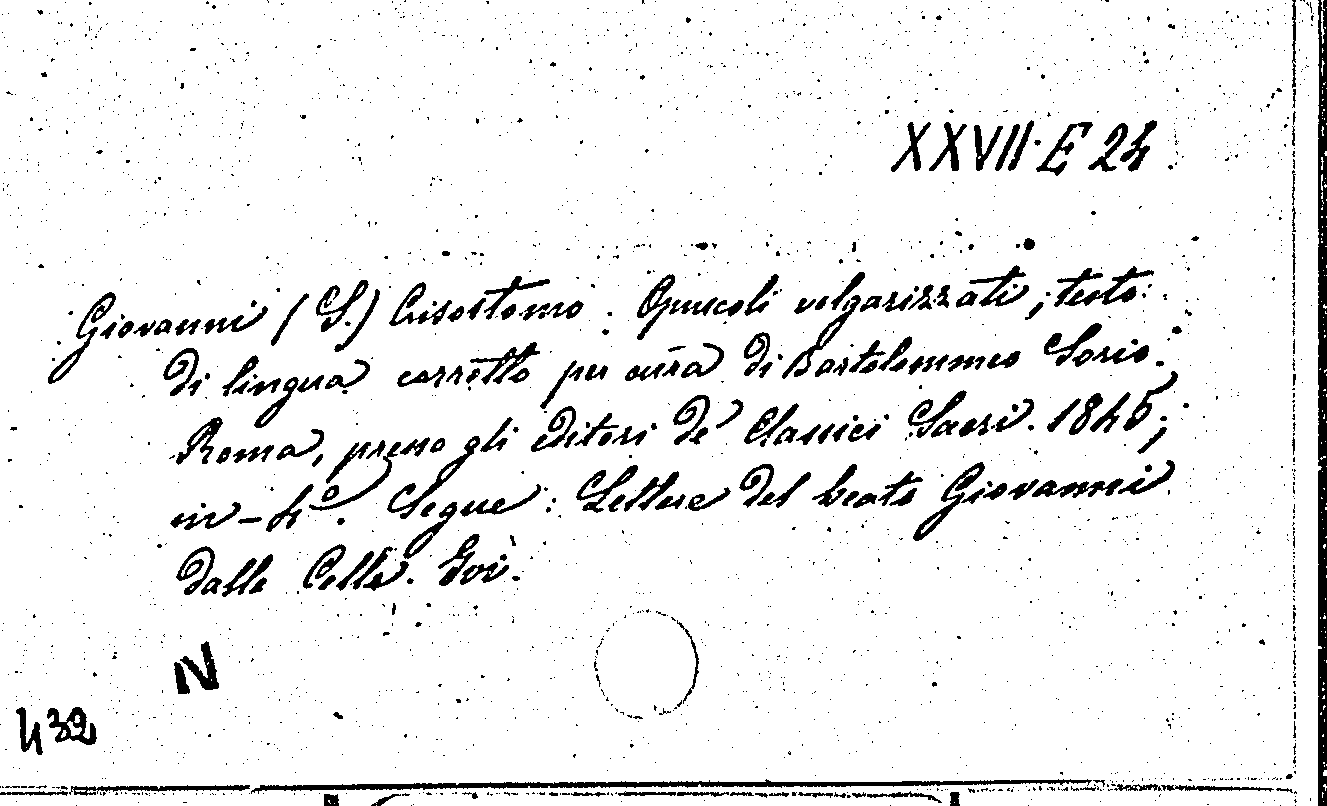 XXVII. E 24
Giovanni (S.) Crisostomo. Opuscoli volgarizzati; testo
di lingua corretto per cura di Bartolommeo Sorio.
Roma, presso gli editori de' Classici Sacri. 1845;
in-4º. Segue: Lettere del beato Giovanni
dalle Celle. Ivi.
N
432